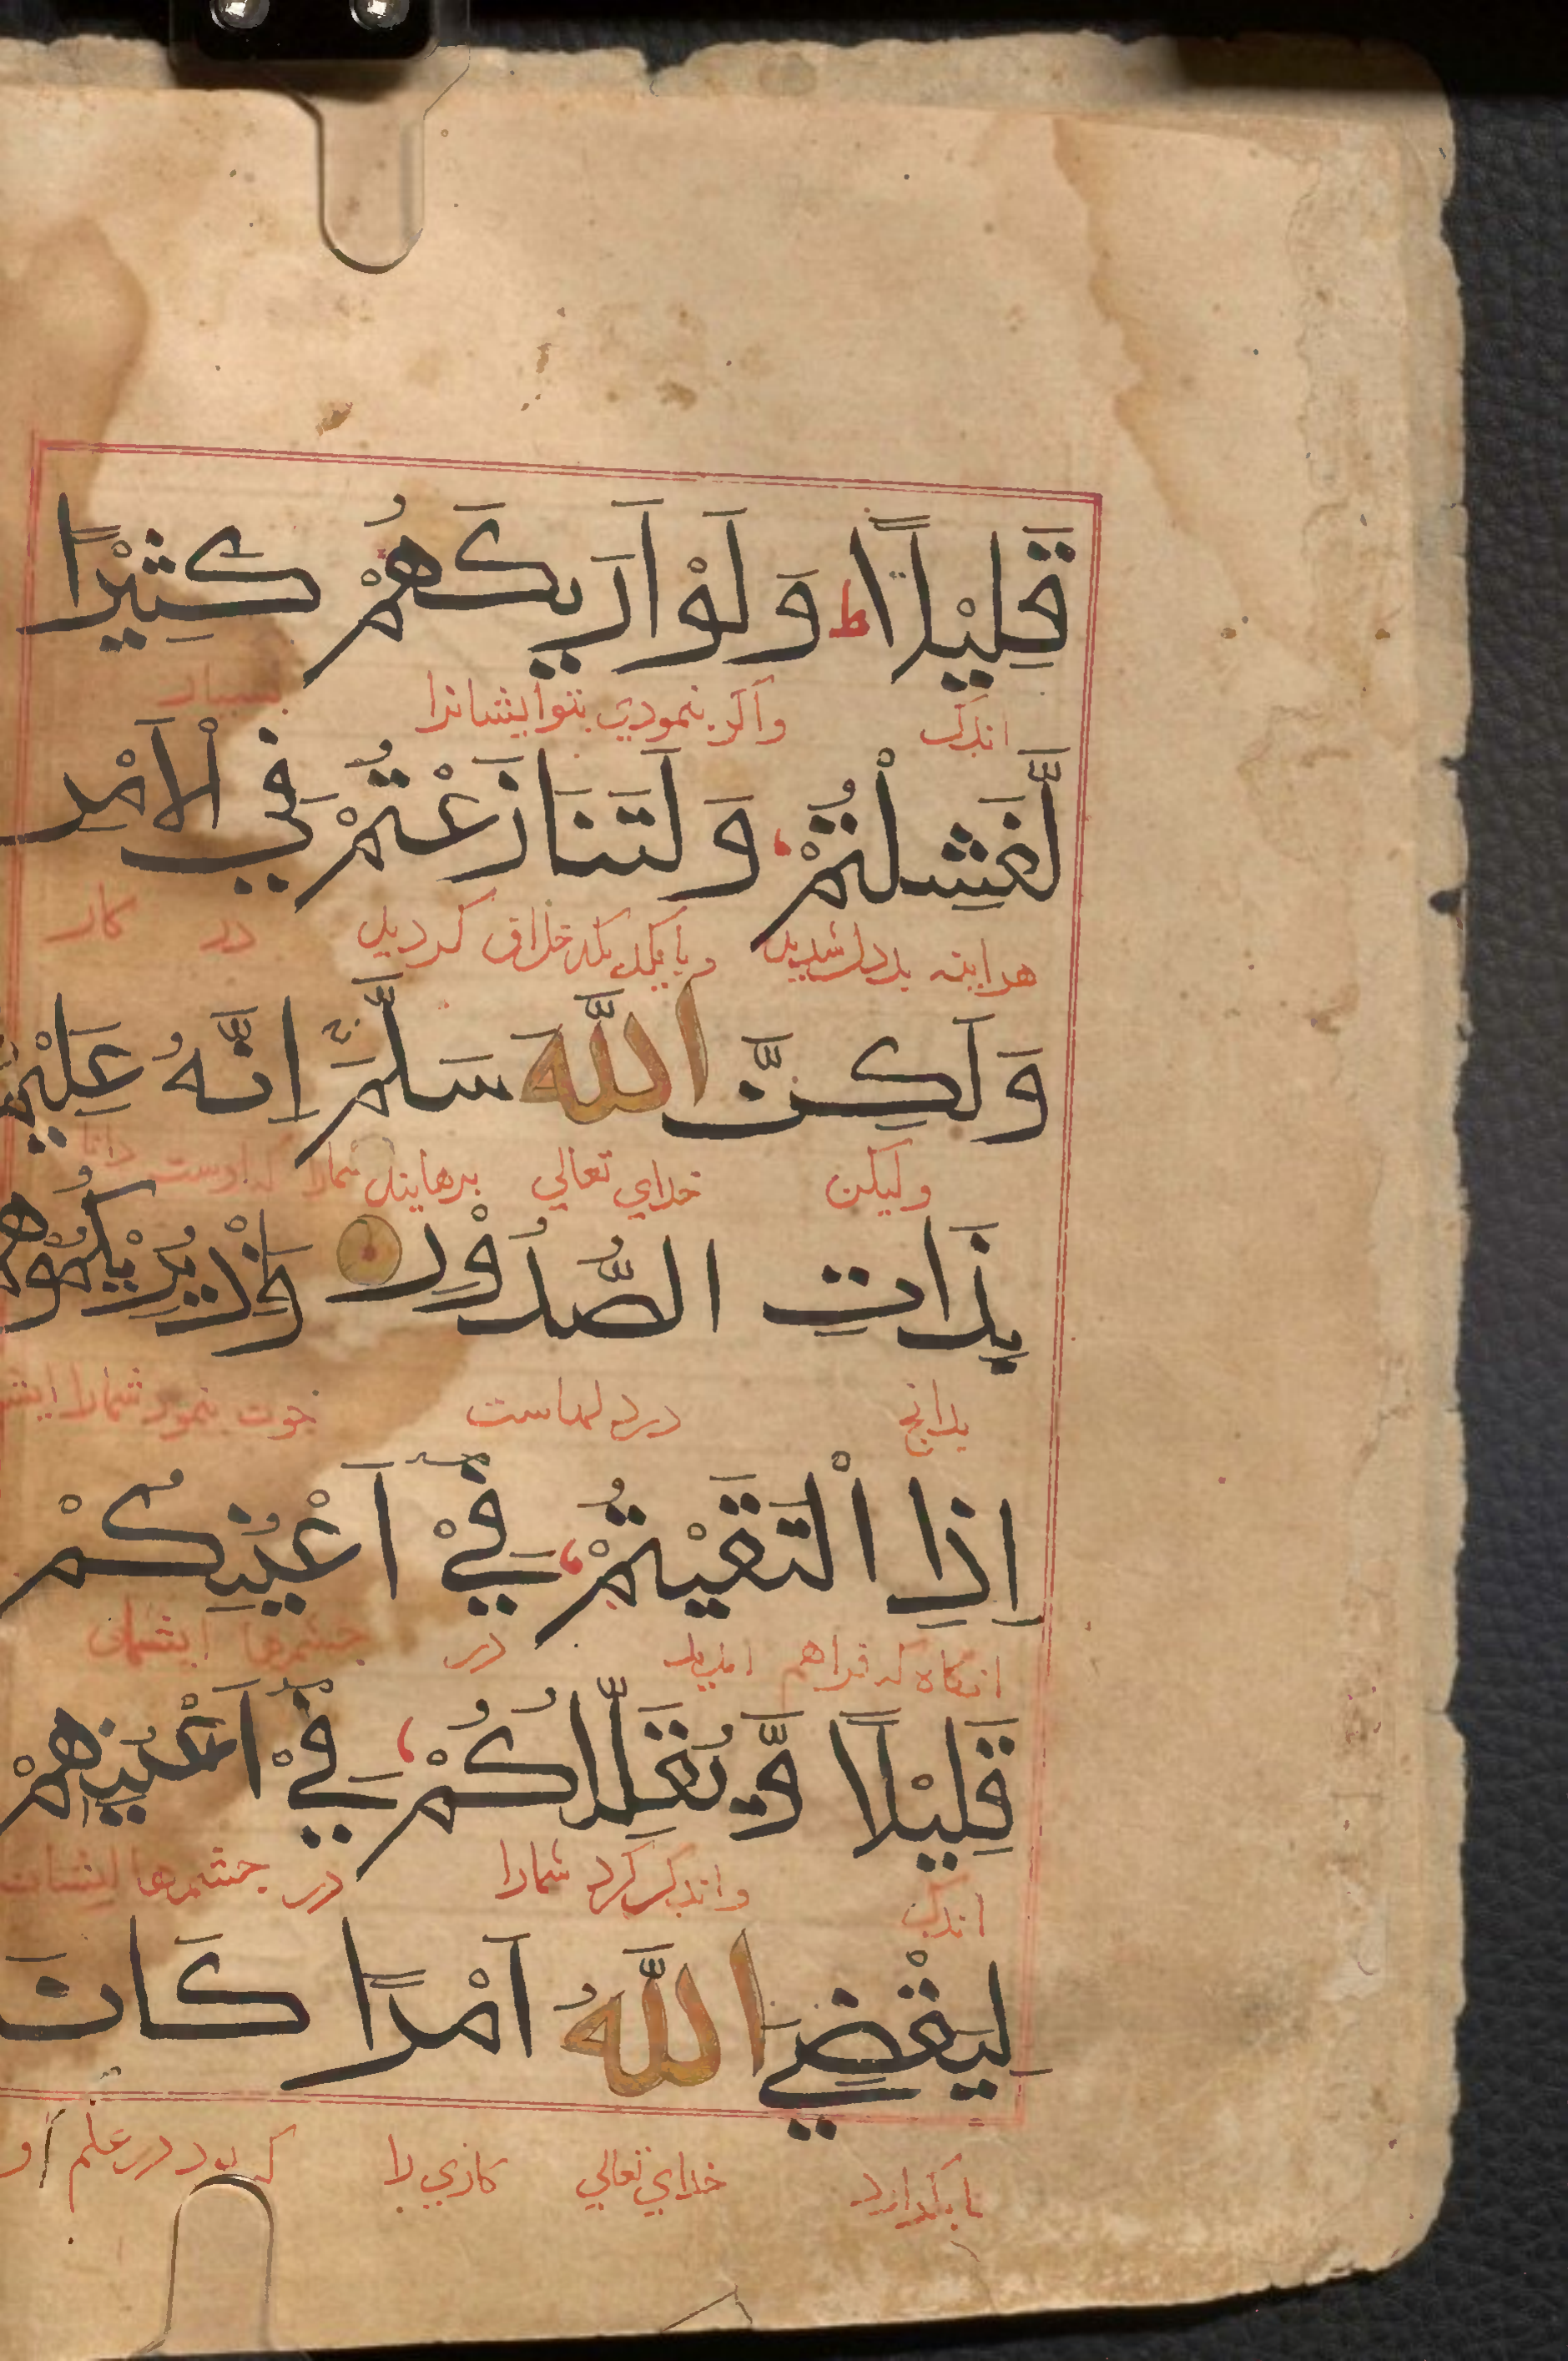 قَلِيْلًا ط وَلَوْ اَرٰىكَهُمْ كَثِيْرًا
اندک واگر بنمودي بتو ايشانرا بسيار
لَّفَشِلْتُمْ وَلَتَنَازَعْتُمْ فِي الْاَمْرِ
هراينه بددل شديد خلاف کرديد در کار
وَلٰكِنَّ اللّٰهَ سَلَّمَ اِنَّهُ عَلِيْمٌ
وليکن خداي تعالي برهانيد شمارا که اوست دانا
بِذَاتِ الصُّدُوْرِ وَاِذْ يُرِيْكُمُوْهُمْ
بدانچ در دلهاست چون بنمود شمارا
اِذِ الْتَقَيْتُمْ فِيْ اَعْيُنِكُمْ
انگاه که فراهم امديد در چشمها ايشان
قَلِيْلًا وَّيُقَلِّلُكُمْ فِيْ اَعْيُنِهِمْ
اندک واندک کرد شمارا در چشمها ايشان
لِيَقْضِيَ اللّٰهُ اَمْرًا كَانَ
تا بگذارد خداي تعالي کاري را که بود در علم او